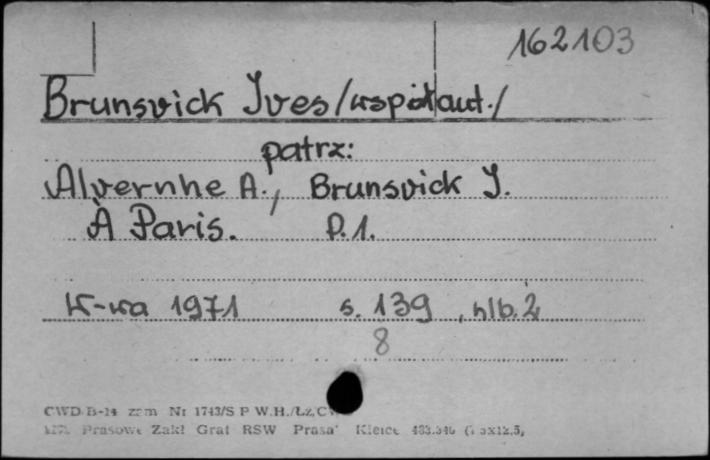 162103
Brunsvick Yves /współaut./
patrz:
Alvernhe A., Brunsvick Y.
À Paris. P. 1.
W-wa 1971 s. 139, nlb. 2
8
CWD B-14 zam Nr 1743/S P W.H./Łz.
Prasowe Zakł Graf RSW "Prasa" Kielce